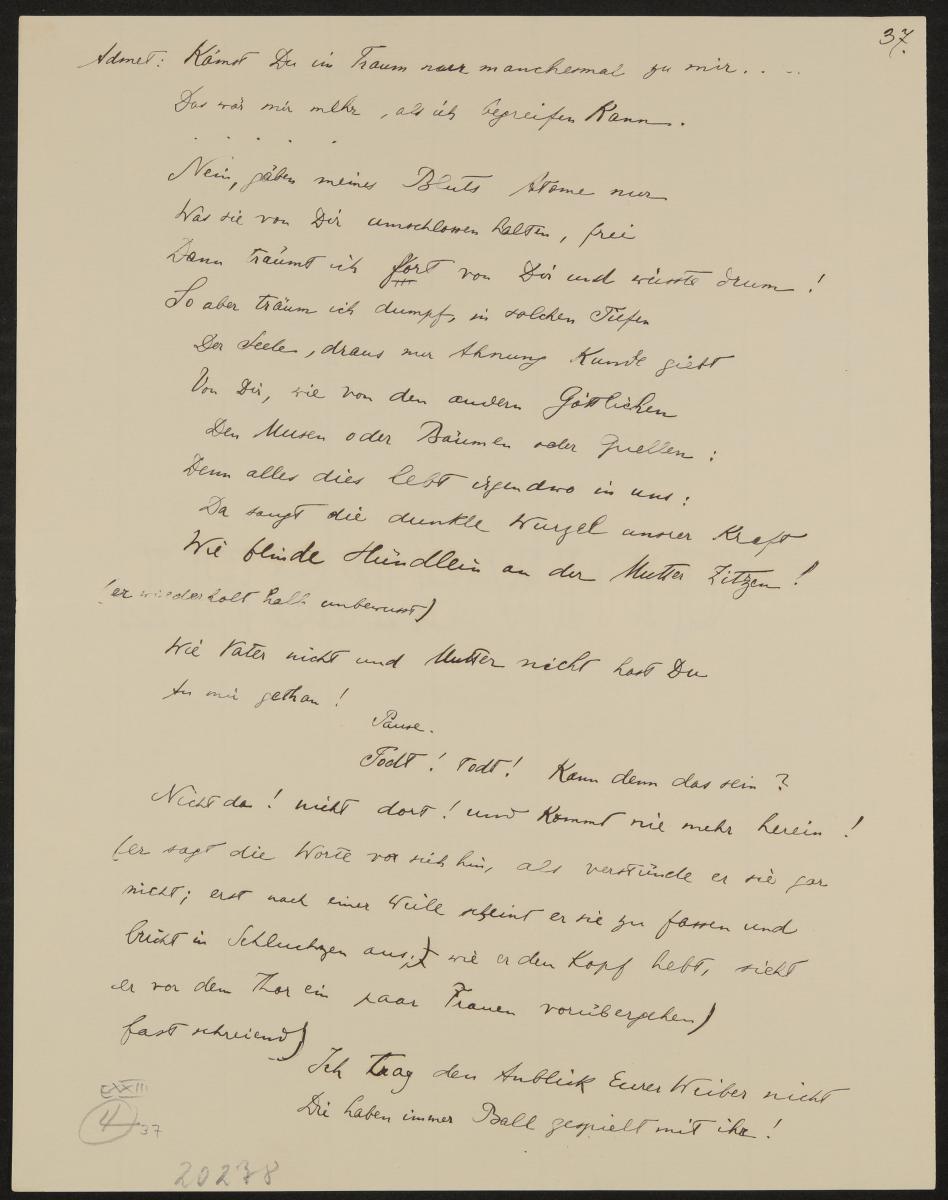 37.
Admet: Kämst Du im Traum nur manchesmal zu mir . . . .
Das wär mir mehr, als ich begreifen Kann.
. . . . .
Nein, gäben meines Bluts Atome nur
Was sie von Dir umschlossen halten, frei
Dann träumt ich fort von Dir und wüsste drum!
So aber träum ich dumpf, in solchen Tiefen
Der Seele, draus nur Ahnung Kunde giebt
Von Dir, wie von den andern Göttlichen
Den Musen oder Bäumen oder Quellen:
Denn alles dies lebt irgendwo in uns:
Da saugt die dunkle Wurzel unsrer Kraft
Wie blinde Hündlein an der Mutter Zitzen!
(er wiederholt halb unbewusst)
Wie Vater nicht und Mutter nicht hast Du
An mir gethan!
Pause.
Todt! Todt! Kann denn das sein?
Nicht da! nicht dort! und Kommt nie mehr herein!
(er sagt die Worte vor sich hin, als verstünde er sie gar
nicht; erst nach einer Weile scheint er sie zu fassen und
bricht in Schluchzen aus; wie er den Kopf hebt, sieht
er vor dem Thor ein paar Frauen vorübergehen)
fast schreiend)
Ich trag den Anblick Eurer Weiber nicht
Die haben immer Ball gespielt mit ihr!
CXXIII
4
37
20238